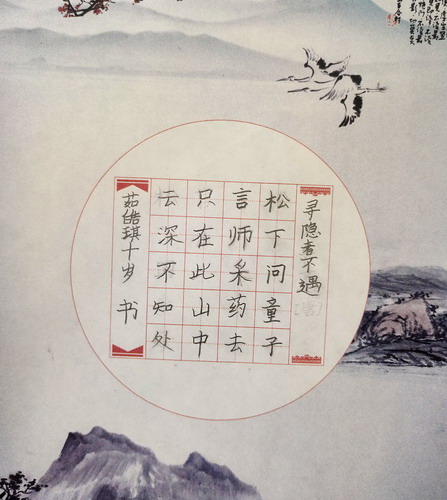 寻隐者不遇
松下问童子
言师采药去
只在此山中
云深不知处
茹皓琪十岁 书